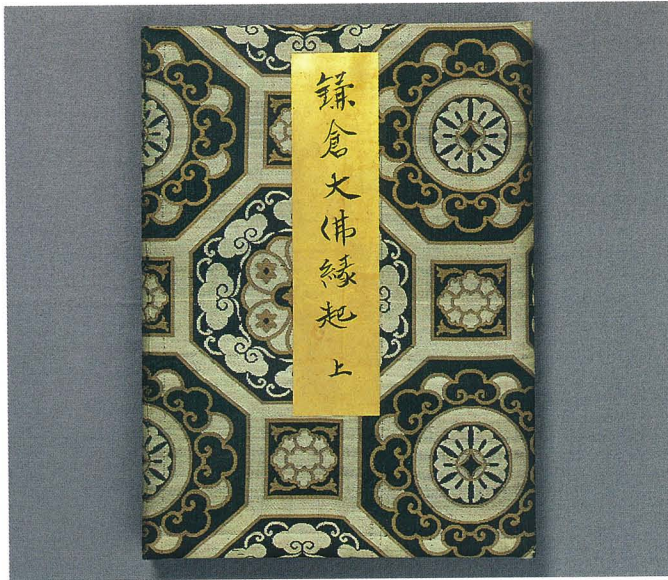 鎌倉大佛縁起 上